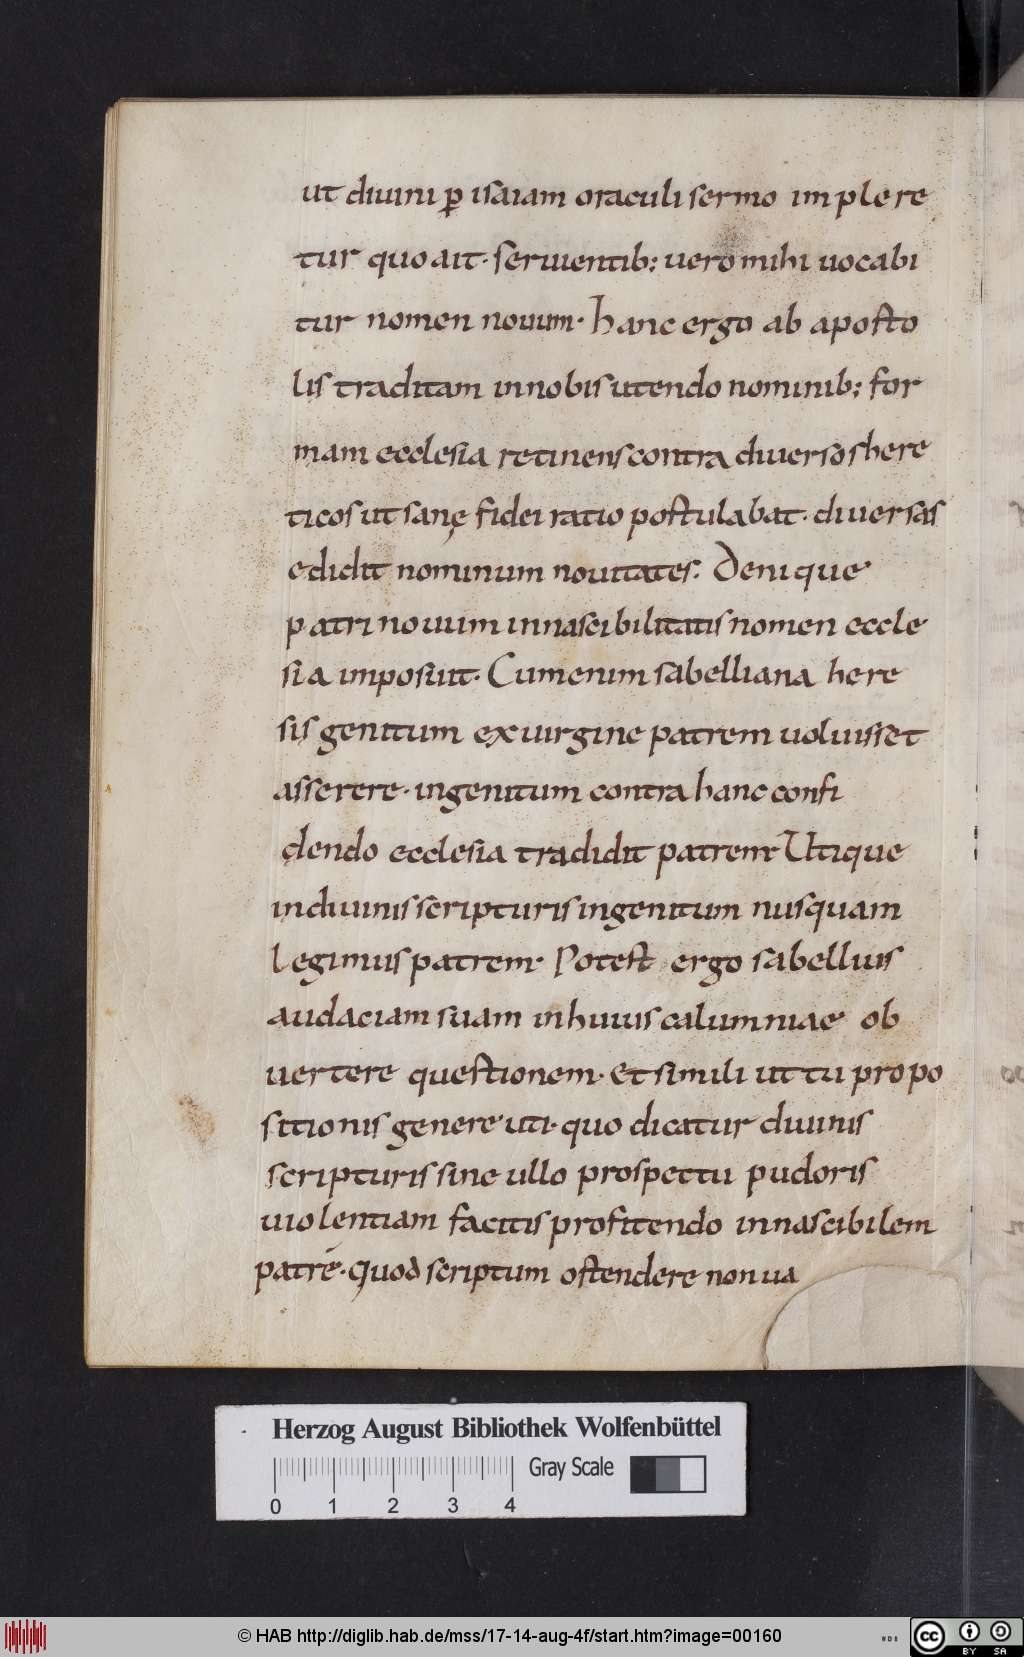 ut diuini ꝑ isaiam oraculi sermo implere
tur quo ait· seruientib; uero mihi uocabi
tur nomen nouum· hanc ergo ab aposto
lis traditam in nobis utendo nominib; for
mam ecclesia retinens contra diuersos here
ticos ut sanę fidei ratio postulabat· diuersas
edidit nominum nouitates· Denique
patri nouum innascibilitatis nomen eccle
sia imposuit· Cum enim sabelliana here
sis genitum ex uirgine patrem uoluisset
asserere· ingenitum contra hanc confi
dendo ecclesia tradidit patrem· Utique
in diuinis scripturis ingenitum nusquam
legimus patrem· Potest ergo sabellius
audaciam suam in huius calumniae ob
uertere questionem· et simili ut tu propo
sitionis genere uti· quo dicatur diuinis
scripturis sine ullo prospectu pudoris
uiolentiam facitis profitendo innascibilem
patrē· quod scriptum ostendere non ua
Herzog August Bibliothek Wolfenbüttel
Gray Scale
0 1 2 3 4
© HAB http://diglib.hab.de/mss/17-14-aug-4f/start.htm?image=00160
WDB
cc BY SA